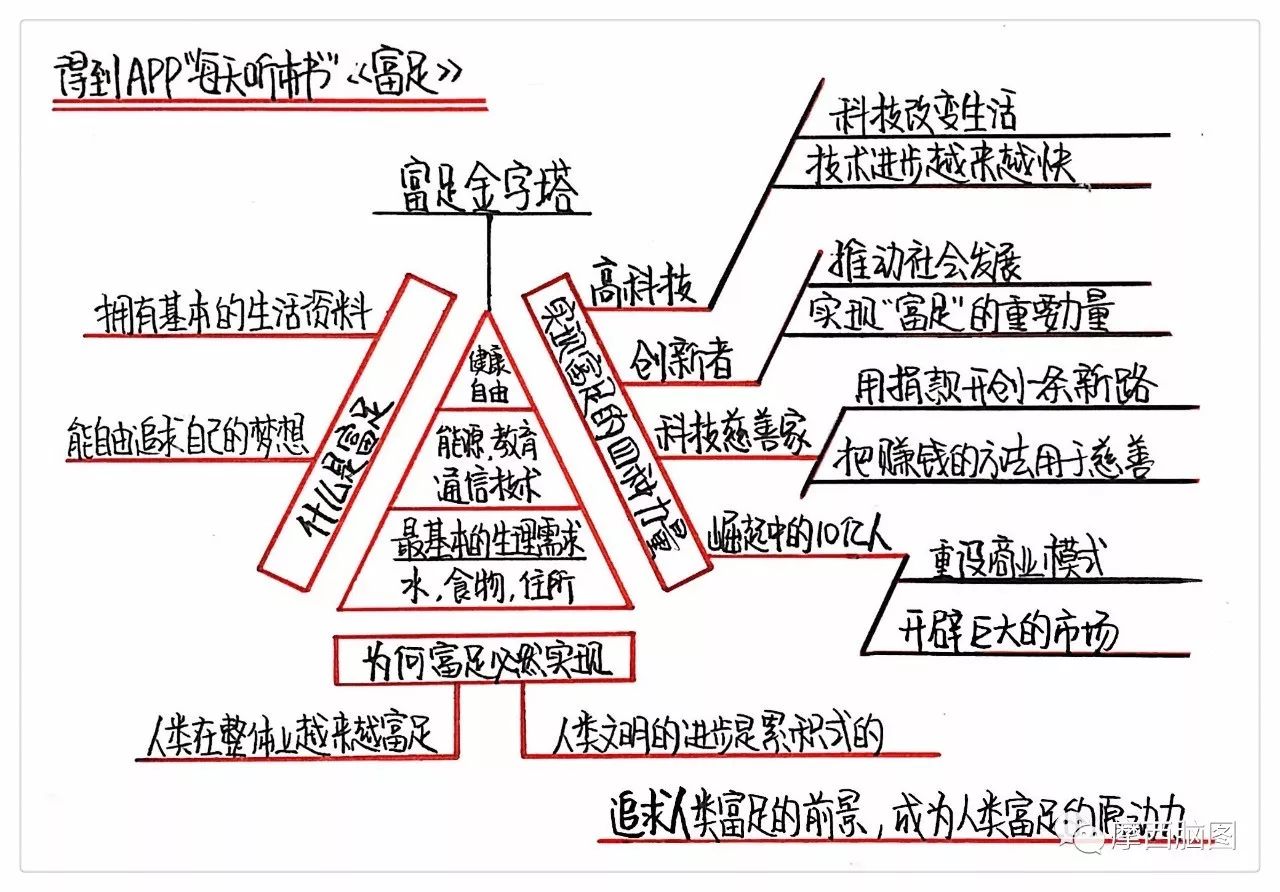 得到APP"每天听本书"《富足》
富足金字塔
健康
自由
能源,教育
通信技术
最基本的生理需求
水,食物,住所
什么是富足
拥有基本的生活资料
能自由追求自己的梦想
实现富足的四种力量
高科技
科技改变生活
技术进步越来越快
创新者
推动社会发展
实现"富足"的重要力量
科技慈善家
用捐款开创一条新路
把赚钱的方法用于慈善
崛起中的10亿人
重设商业模式
开辟巨大的市场
为何富足必然实现
人类在整体上越来越富足
人类文明的进步是累积式的
追求人类富足的前景,成为人类富足的原动力
摩西脑图